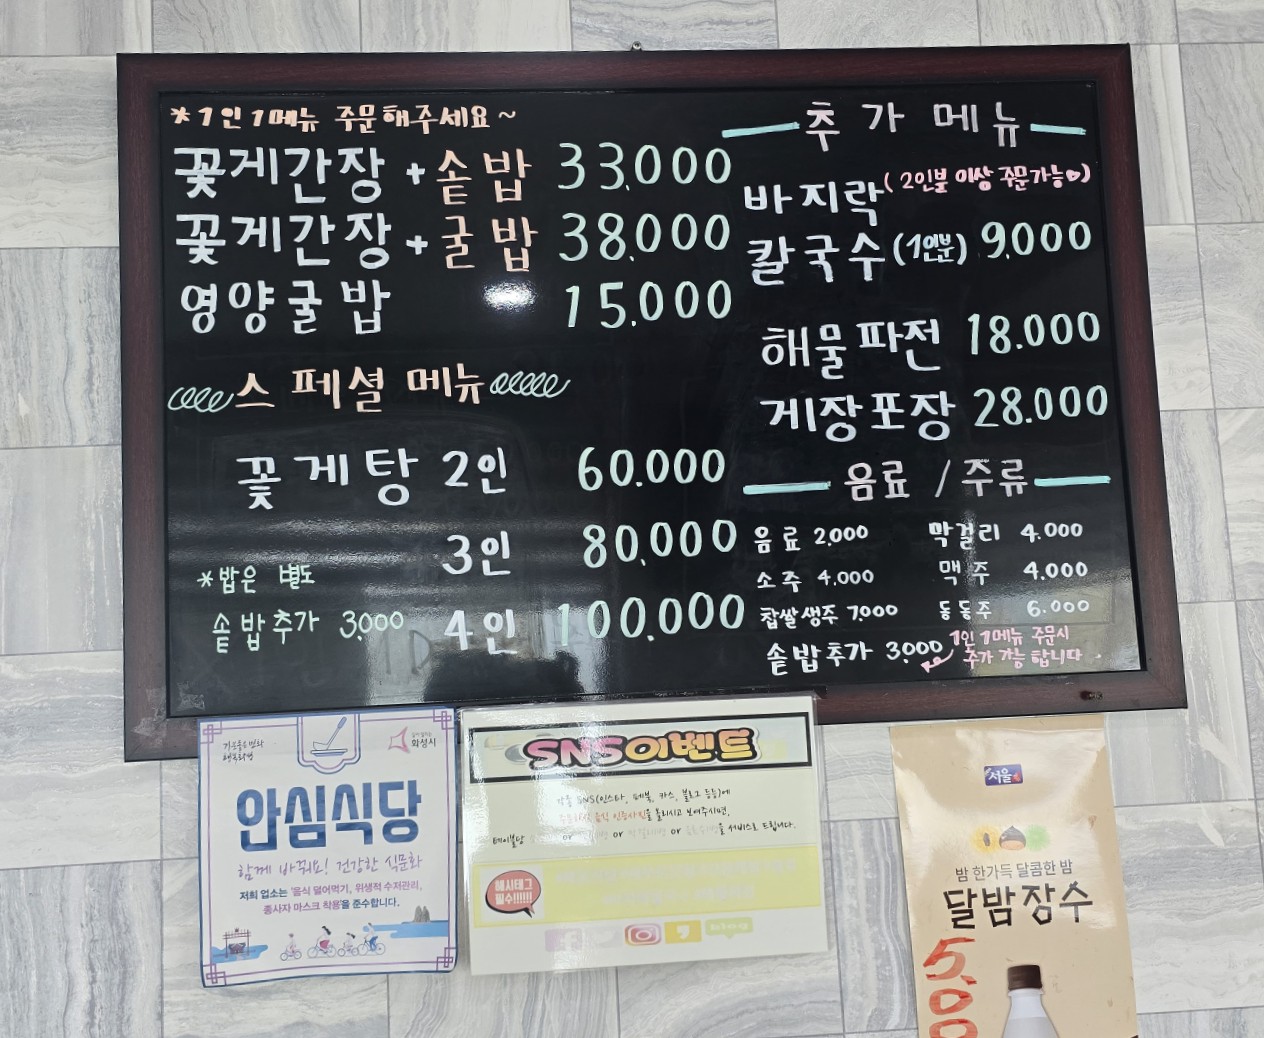 *1인 1메뉴 주문해주세요~
꽃게간장+솥밥 33,000
꽃게간장+굴밥 38,000
영양굴밥 15,000
스페셜 메뉴
꽃게탕 2인 60,000
3인 80,000
*밥은 별도
솥밥추가 3,000
4인 100,000
추가메뉴
(2인분 이상 주문가능♡)
바지락
칼국수(1인분) 9,000
해물파전 18.000
게장포장 28.000
음료/주류
음료 2,000 막걸리 4.000
소주 4,000 맥주 4,000
찹쌀생주 7,000 동동주 6.000
솥밥추가 3,000
1인 1메뉴 주문시
추가 가능 합니다
화성시
안심식당
함께 바꿔요! 건강한 식문화
저희 업소는 '음식 덜어먹기, 위생적 수저관리,
종사자 마스크 착용'을 준수합니다.
SNS이벤트
각종 SNS(인스타, 페북, 카스, 블로그 등등)에
음식 인증사진을 올리시고 보여주시면,
테이블당 or or or 서비스로 드립니다.
해시태그
필수!!!!!!
서울
밤 한가득 달콤한 밤
달밤장수
5,00